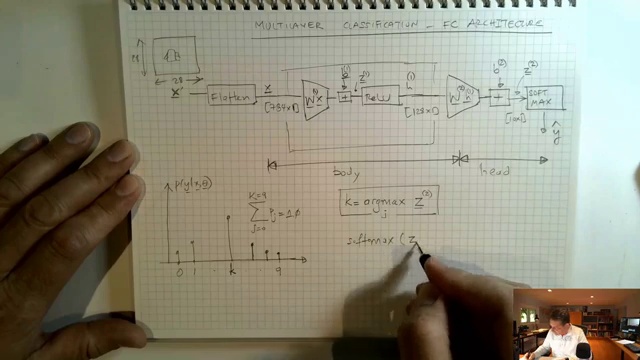 MULTILAYER CLASSIFICATION - FC ARCHITECTURE
28
28
x'
Flatten
x
[784x1]
W⁽¹⁾x
b⁽¹⁾
+
z⁽¹⁾
ReLU
h⁽¹⁾
[128x1]
W⁽²⁾h⁽¹⁾
b⁽²⁾
+
z⁽²⁾
[10x1]
SOFT
MAX
ŷ
body
head
P(y|x,θ)
K=9
∑ Pj = 1.0
j=0
0 1 . k 9
k = argmax z⁽²⁾
j
softmax (z